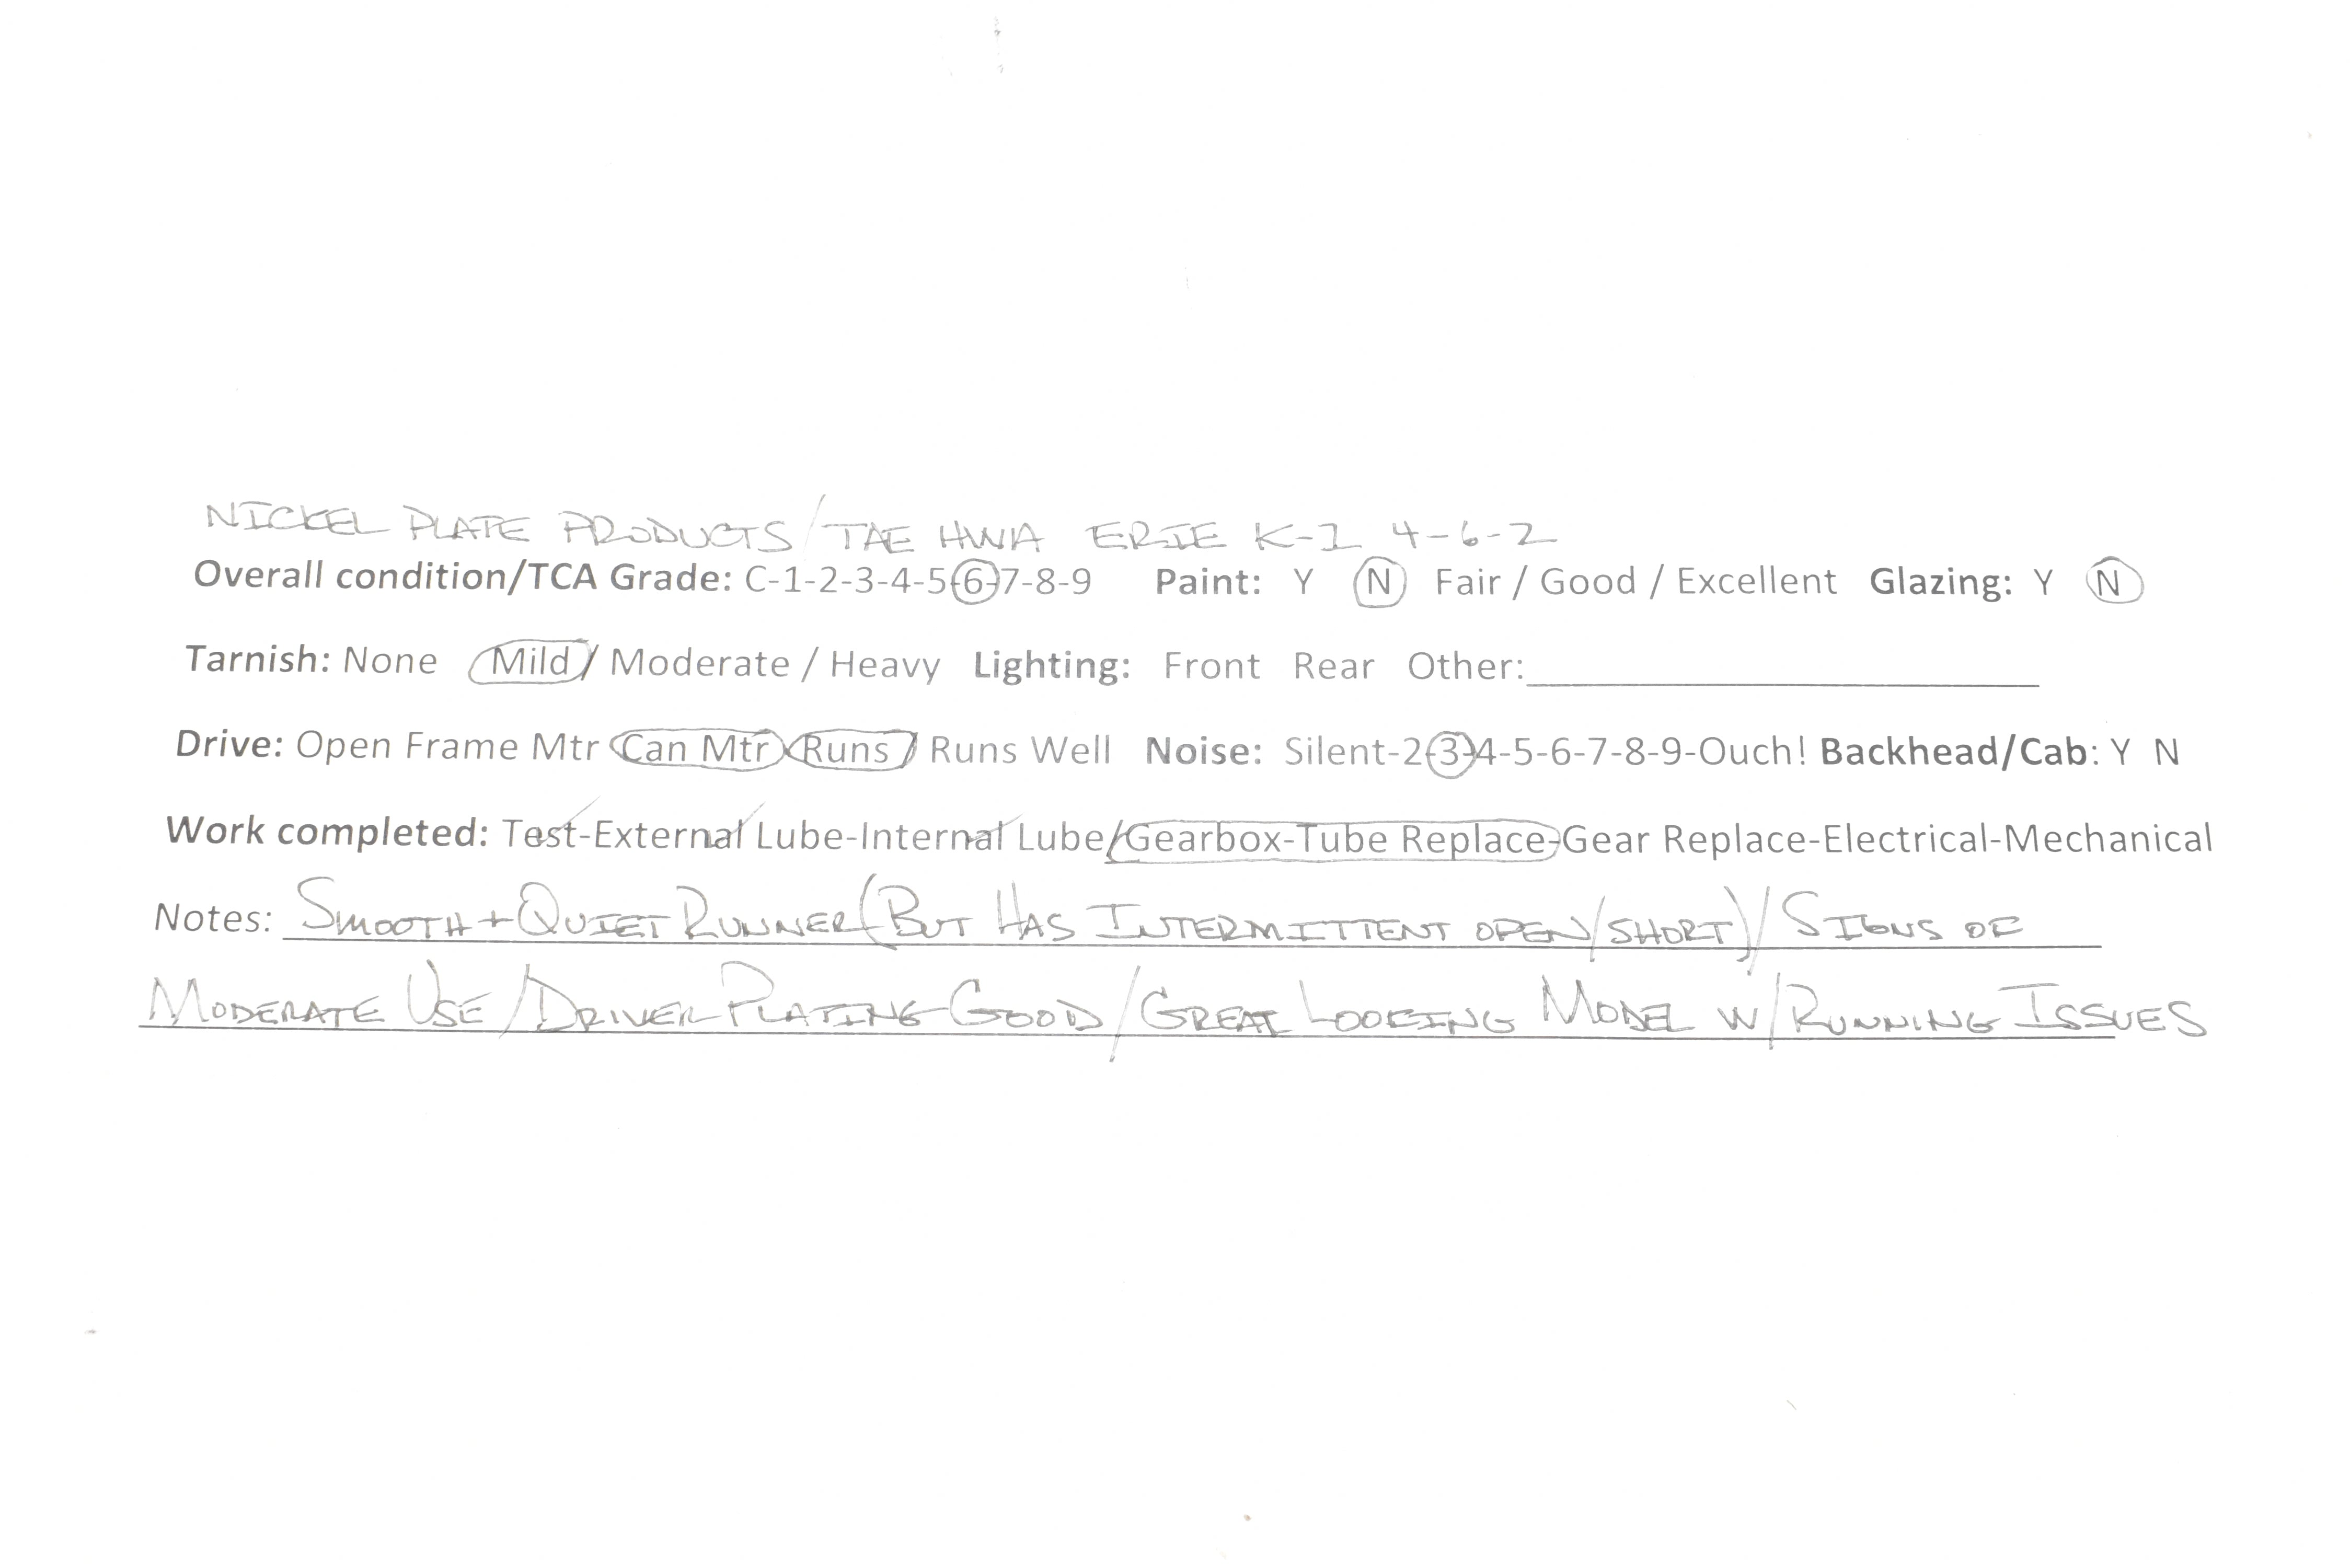 NICKEL PLATE PRODUCTS/TAE HWA ERIE K-1 4-6-2
Overall condition/TCA Grade: C-1-2-3-4-5-6-7-8-9 Paint: Y N Fair / Good / Excellent Glazing: Y N
Tarnish: None Mild / Moderate / Heavy Lighting: Front Rear Other:
Drive: Open Frame Mtr Can Mtr Runs / Runs Well Noise: Silent-2-3-4-5-6-7-8-9-Ouch! Backhead/Cab: Y N
Work completed: Test-External Lube-Internal Lube/Gearbox-Tube Replace-Gear Replace-Electrical-Mechanical
Notes: SMOOTH + QUIET RUNNER (BUT HAS INTERMITTENT OPEN/SHORT)/SIGNS OF
MODERATE USE/DRIVER PLATING GOOD/GREAT LOOKING MODEL W/RUNNING ISSUES